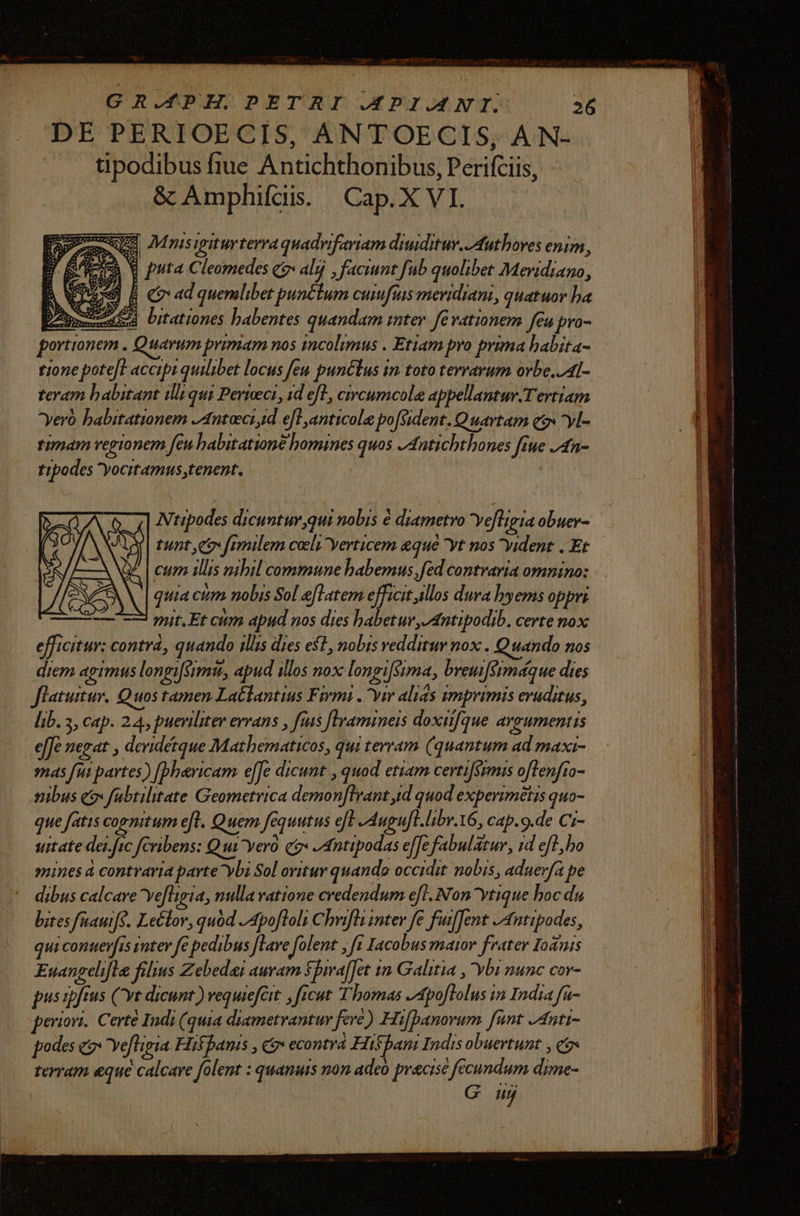 GRAPH. PETRI APIANI. 26
DE PERIOECIS, ANTOECIS, AN-
tipodibus ſiue Antichthonibus, Periſciis,
& Amphiſciis. Cap. XVI.
Mnis igitur terra quadrifariam diuiditur. Authores enim,
puta Cleomedes & alij, faciunt ſub quolibet Meridiano,
& ad quemlibet punctum cuiuſuis meridiani, quatuor ha
bitationes habentes quandam inter ſe rationem ſeu pro-
portionem. Quarum primam nos incolimus. Etiam pro prima habita-
tione poteſt accipi quilibet locus ſeu punctus in toto terrarum orbe. Al-
teram habitant illi qui Periœci, id eſt, circumcolæ appellantur. Tertiam
verò habitationem Antœci, id eſt, anticolæ poſsident. Quartam & vl-
timam regionem ſeu habitationē homines quos Antichthones ſiue An-
tipodes vocitamus, tenent.
Ntipodes dicuntur, qui nobis è diametro veſtigia obuer-
tunt, & ſimilem cœli verticem æquè vt nos vident. Et
cum illis nihil commune habemus, ſed contraria omnino:
quia cùm nobis Sol æſtatem efficit, illos dura hyems oppri
mit. Et cùm apud nos dies habetur, Antipodib. certe nox
efficitur: contrà, quando illis dies eſt, nobis redditur nox. Quando nos
diem agimus longiſsimū, apud illos nox longiſsima, breuiſsimáque dies
ſtatuitur. Quos tamen Lactantius Firmi. vir aliás imprimis eruditus,
lib. 3, cap. 24, pueriliter errans, ſuis ſtramineis doxiiſque argumentis
eſſe negat, deridétque Mathematicos, qui terram (quantum ad maxi-
mas ſui partes) ſphæricam eſſe dicunt, quod etiam certiſsimis oſtenſio-
nibus & ſubtilitate Geometrica demonſtrant, id quod experimētis quo-
que ſatis cognitum eſt. Quem ſequutus eſt Auguſt. libr. 16, cap. 9. de Ci-
uitate dei. ſic ſcribens: Qui verò & Antipodas eſſe fabulātur, id eſt, ho
mines à contraria parte vbi Sol oritur quando occidit nobis, aduerſa pe
dibus calcare veſtigia, nulla ratione credendum eſt. Non vtique hoc du
bites ſuauiſs. Lector, quòd Apoſtoli Chriſti inter ſe fuiſſent Antipodes,
qui conuerſis inter ſe pedibus ſtare ſolent, ſi Iacobus maior frater Ioānis
Euangeliſtæ filius Zebedæi auram ſpiraſſet in Galitia, vbi nunc cor-
pus ipſius (vt dicunt) requieſcit, ſicut Thomas Apoſtolus in India ſu-
periori. Certè Indi (quia diametrantur ferè) Hiſpanorum ſunt Anti-
podes & veſtigia Hiſpanis, & econtrà Hiſpani Indis obuertunt, &
terram æquè calcare ſolent: quanuis non adeò præcisè ſecundum dime-
G iij